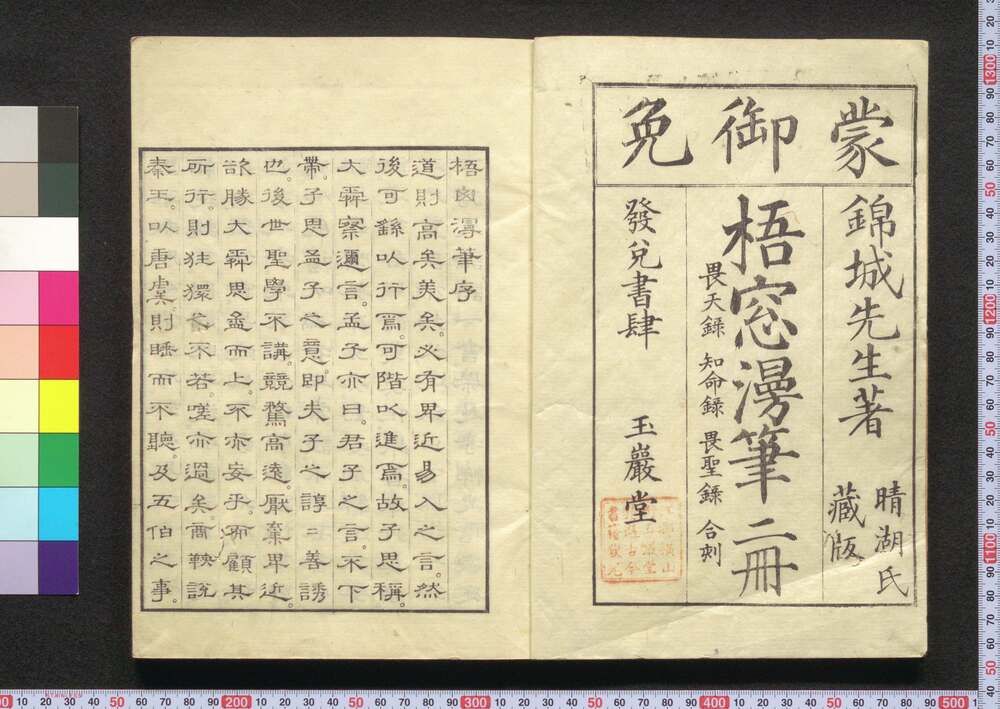 蒙御免
錦城先生著
晴湖氏
藏版
梧窓漫筆 二冊
畏天錄 知命錄 畏聖錄 合刻
發兌書肆 玉巖堂
梧囪漫筆序
道則高矣美矣。必有卑近易入之言。然
後可繇以行焉。可階以進焉。故子思稱
大舜察邇言。孟子亦曰。君子之言。不下
帶。子思孟子之意。即夫子之諄〻善誘
也。後世聖學不講。競騖高遠。厭棄卑近。
欲勝大舜思孟而上。不亦妄乎。而顧其
所行。則狂獧不若。嗟亦過矣。商鞅説
秦王。以唐虞。則睡而不聽。及五伯之事。